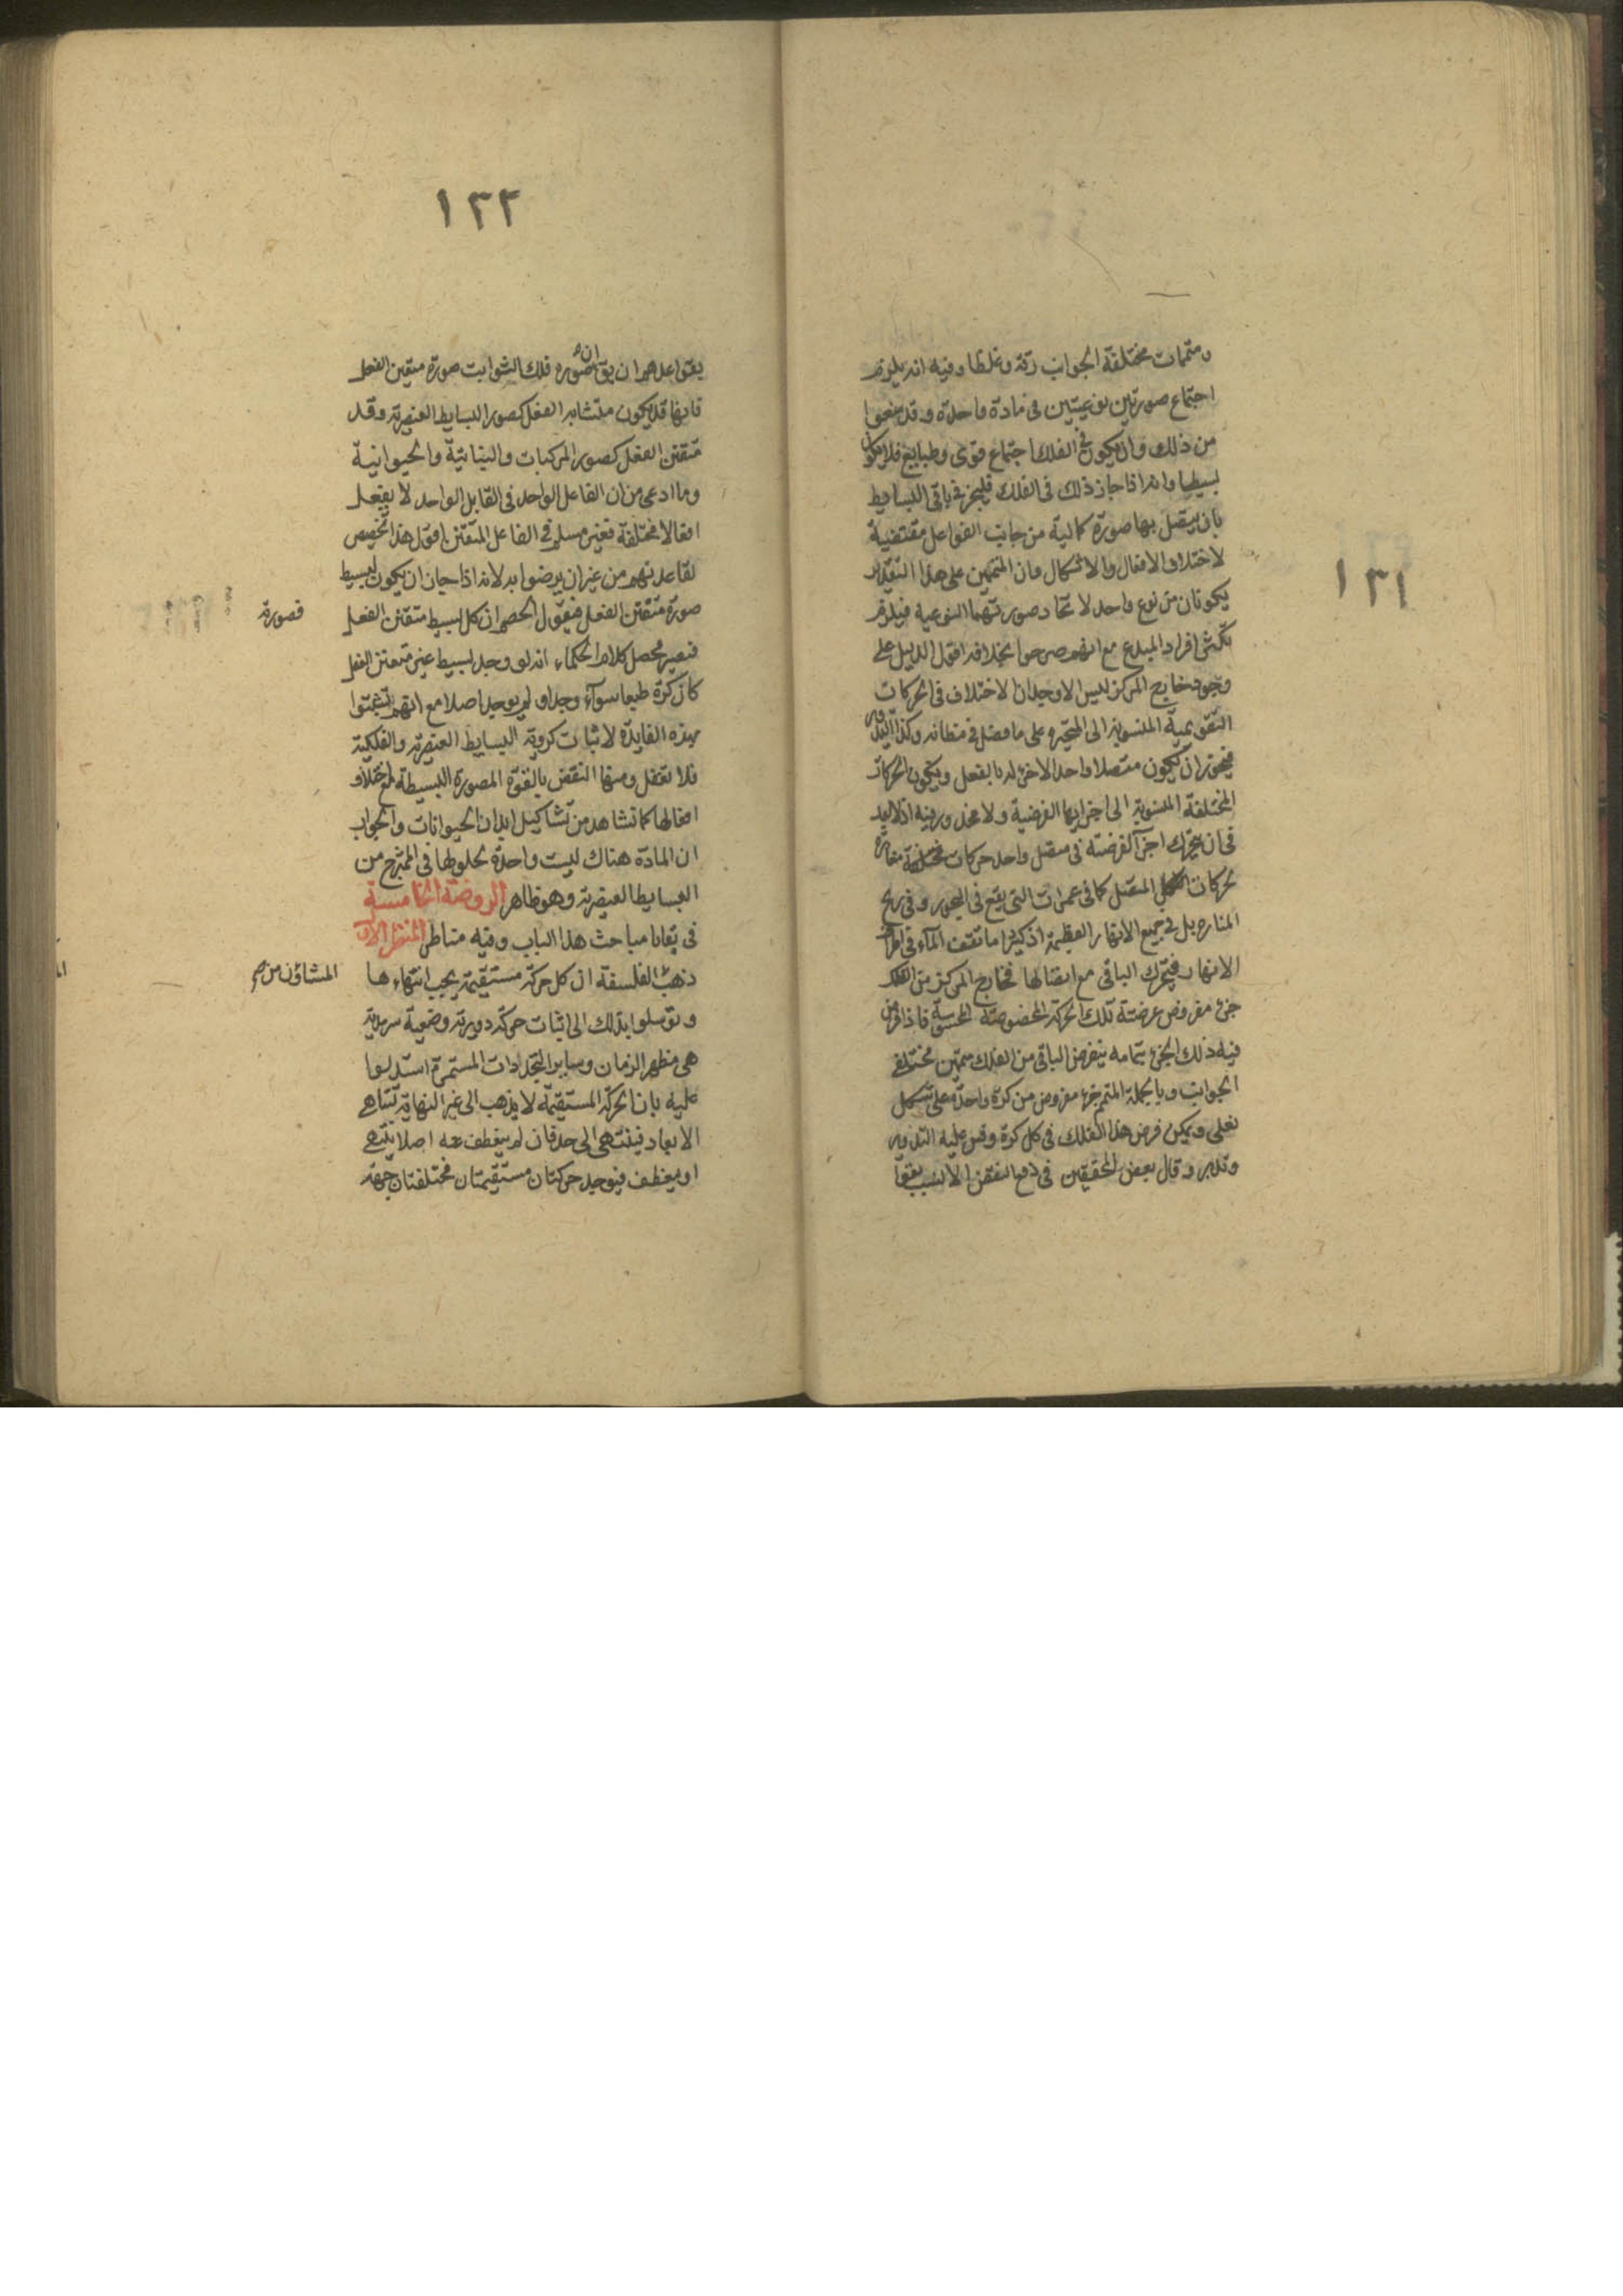 ١٣١
ومتممات مختلفة الجوانب رقة وغلظا وفيه انه يلزم
اجتماع صورتين نوعيتين فى مادة واحدة وقد منعوا
من ذلك وان يكون فى الفلك اجتماع قوى وطبايع فلا يكون
بسيطا وانه اذا جاز ذلك فى الفلك فليجز فى باقى البسايط
بان يتصل بها صورة كمالية من جانب الفواعل مقتضية
لاختلاف الافعال والاشكال وان المتممين على هذا التقدير
يكونان من نوع واحد لاتحاد صورتهما النوعيه فيلزم
تكثر افراد المبدع مع انهم صرحوا بخلافه اقول الدليل على
وجود خارج المركز ليس الا وجدان الاختلاف فى الحركات
التقويمية المنسوبة الى المتحيره على ما فصل فى مظانه وكذا التدوير
فيجوز ان يكون متصلا واحدا لا جزء له بالفعل ويكون الحركات
المختلفة المنسوبة الى اجزائها الفرضية ولا محذور فيه اذ لا بعد
فى ان يتحرك اجزآ الفرضية فى متصل واحد حركات مختلفة مغايرة
لحركات الكل المتصل كما فى عمرات التى يقع فى البحور وفى ريح
المناره بل فى جميع الانهار العظيمة اذ كثيرا ما تقف المآء فى اطراف
الانهار فيتحرك الباقى مع اتصالها فخارج المركز من الفلك
جزء مفروض عرضته تلك الحركة المخصوصة المحسوسة فاذا فرض
فيه ذلك الجزء بتمامه يفرض الباقى من الفلك متممين مختلفى
الجوانب وبالجملة المتمم جزء مفروض من كرة واحدة على شكل
نعلى ويمكن فرض هذا الفلك فى كل كرة وقس عليه التدوير
وتدبر وقال بعض المحققين فى دفع النقض الانسب بقوا
١٣٢
بقواعدهم ان يق ان صورة فلك الثوابت صورة متقن الفعل
فانها قد يكون متشابه الفعل كصور البسايط العنصرية وقد
متقن الفعل كصور المركبات والنباتية والحيوانية
وما ادعى من ان الفاعل الواحد فى القابل الواحد لا يفعل
افعالا مختلفة فغير مسلم فى الفاعل المتقن اقول هذا تخصيص
لقاعدتهم من غير ان يرضوا به لانه اذا جاز ان يكون لبسيط
صورة متقن الفعل فيقول الخصم ان كل بسيط متقن الفعل
فصورته
فيصير محصل كلام الحكماء انه لو وجد بسيط غير متقن الفعل
كان كرة طبعا سوآء وجد او لم يوجد اصلا مع انهم تشبثوا
بهذه الفايدة لاثبات كروية البسايط العنصرية والفلكية
فلا تغفل ومنها النقض بالقوة المصورة البسيطة مع اختلاف
افعالها كما نشاهد من تشاكيل ابدان الحيوانات والجواب
ان المادة هناك ليست واحدة لخلوطها فى الممتزج من
البسايط العنصرية وهو ظاهر الروضة الخامسة
فى بقايا مباحث هذا الباب وفيه مناظر المنظر الاول
ذهب الفلسفة ان كل حركة مستقيمة يجب انتهاءها
المشاؤن منهم
وتوسلوا بذلك الى اثبات حركة دورية وضعية سرمدية
هى مظهر الزمان وساير التجددات المستمرة استدلوا
عليه بان الحركة المستقيمة لا يذهب الى غير النهاية لتناهى
الابعاد فينتهى الى حد فان لم ينعطف عنه اصلا ينتهى
او ينعطف فيوجد حركتان مستقيمتان مختلفتان جهة